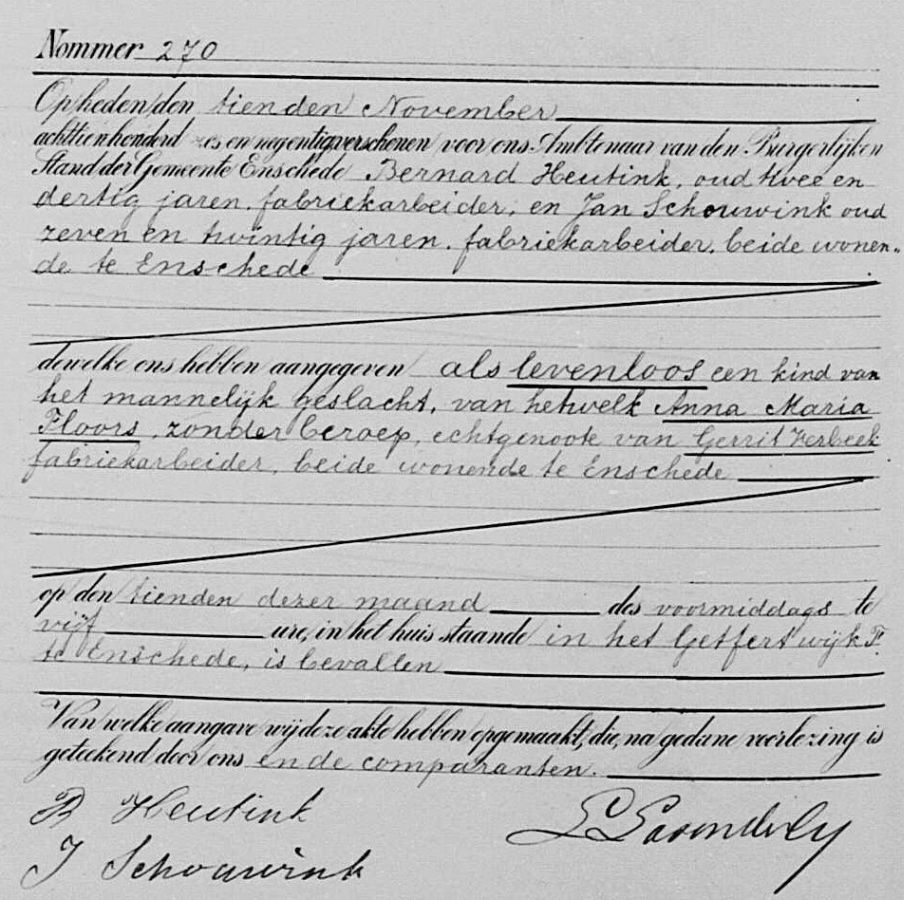 Nommer 270
Op heden den tienden November
achttienhonderd zes en negentig verschenen voor ons Ambtenaar van den Burgerlijken
Stand der Gemeente Enschede Bernard Heutink, oud twee en
dertig jaren, fabriekarbeider, en Jan Schouwink oud
zeven en twintig jaren, fabriekarbeider, beide wonen-
de te Enschede
dewelke ons hebben aangegeven als levenloos een kind van
het mannelijk geslacht, van hetwelk Anna Maria
Floors, zonder beroep, echtgenoote van Gerrit Verbeek
fabriekarbeider, beide wonende te Enschede
op den tienden dezer maand des voormiddags te
vijf ure, in het huis staande in het Getfert wijk F.
te Enschede, is bevallen
Van welke aangave wij deze akte hebben opgemaakt, die, na gedane voorlezing is
geteekend door ons en de comparanten.
B Heutink
J Schouwink